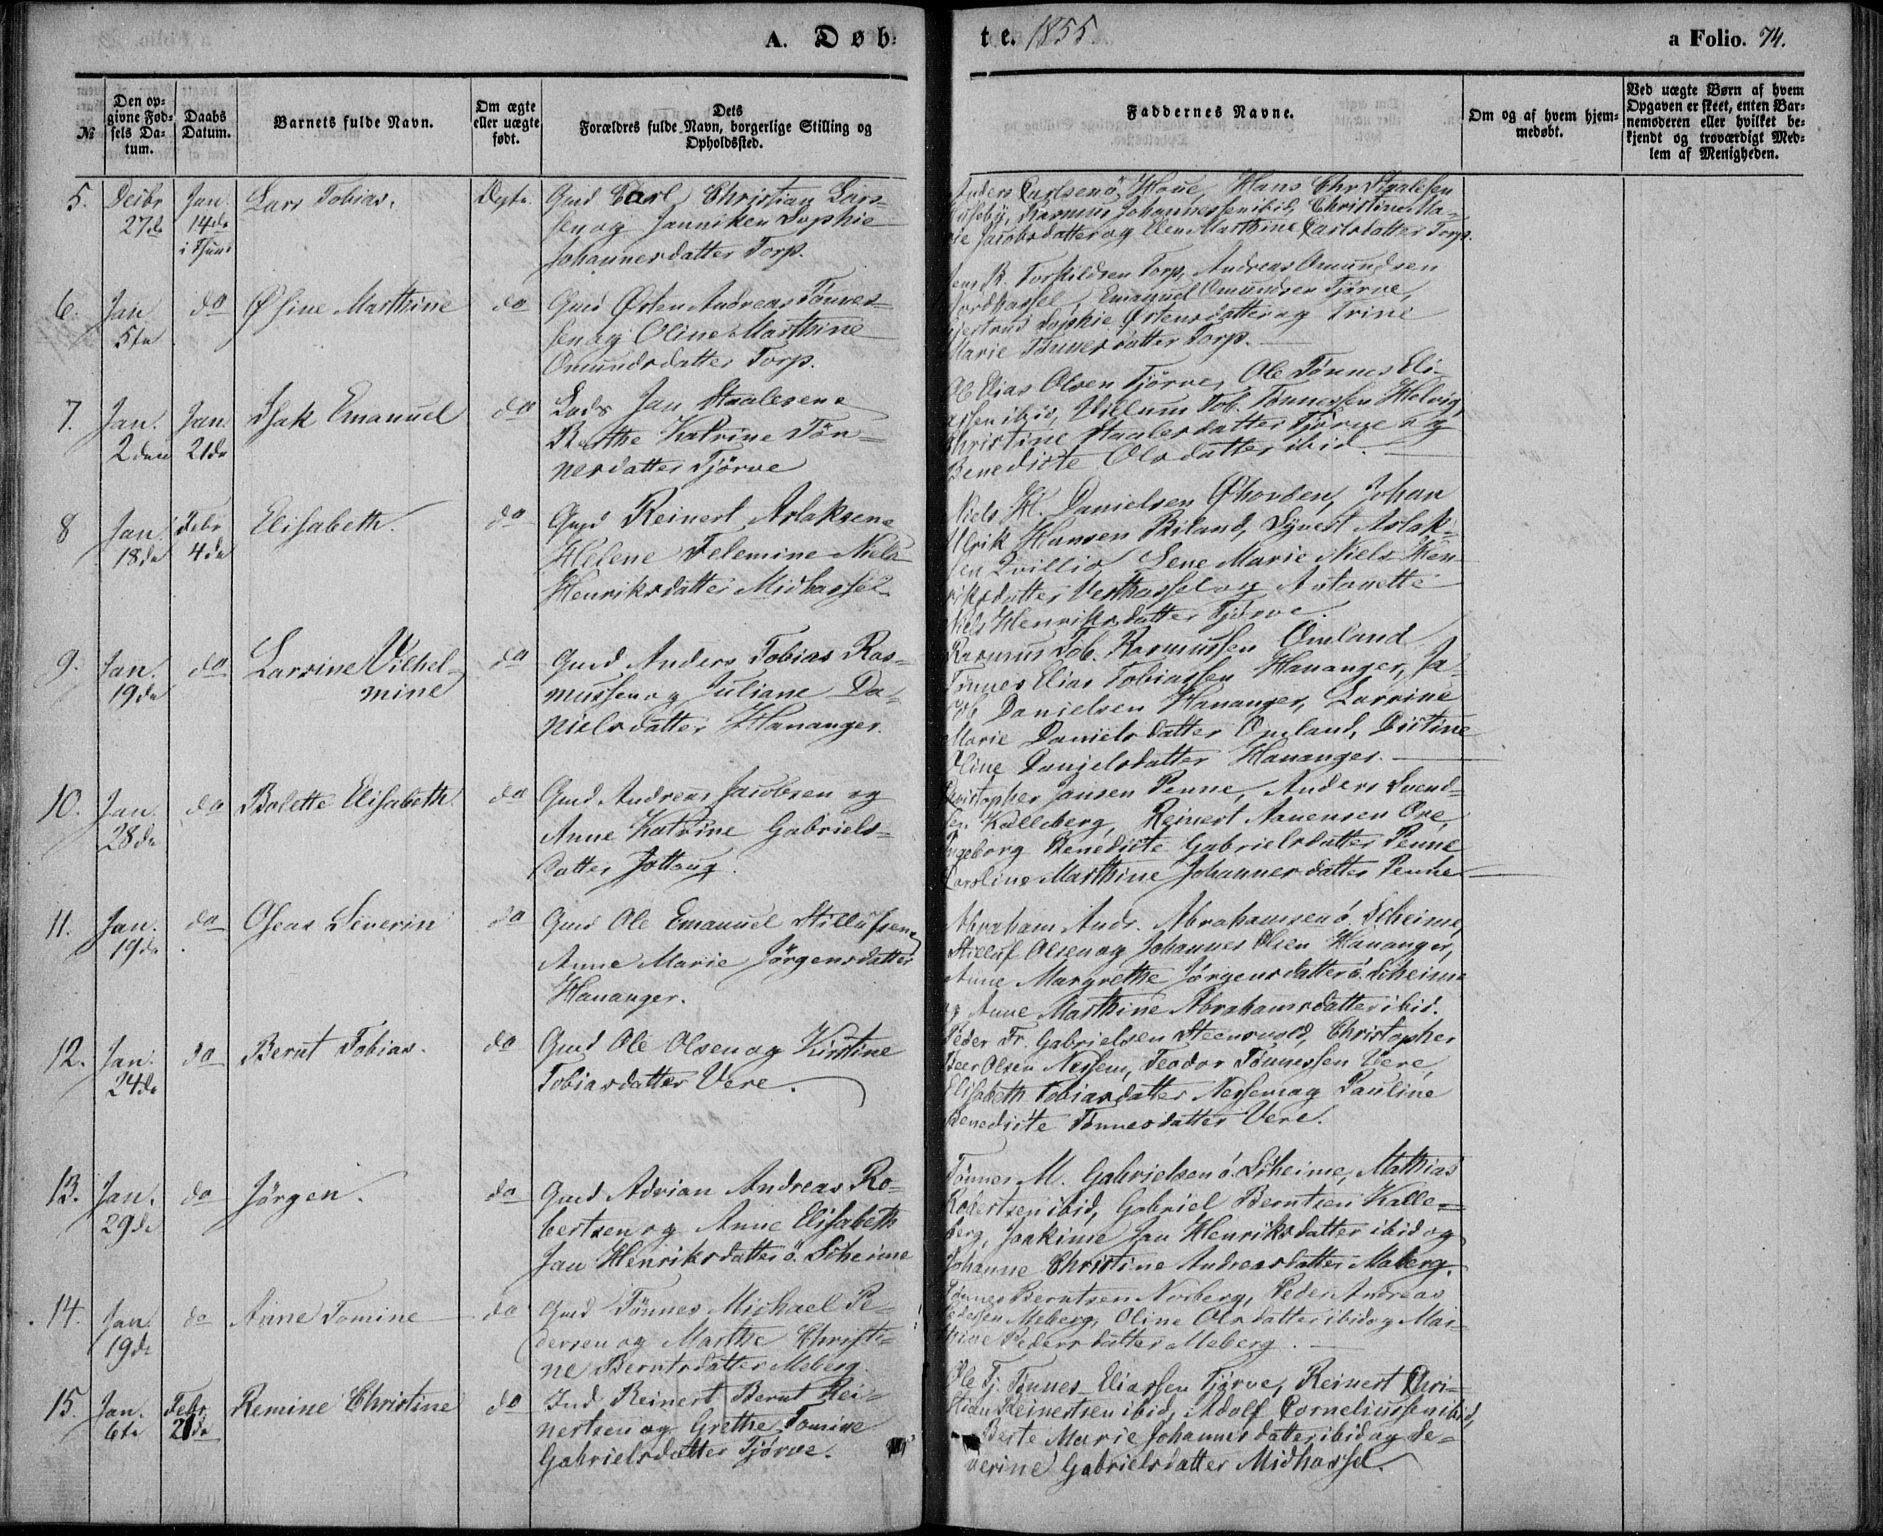 A. Døb-
te. 1855.
a Folio. 74.
№
Den op-
givne Fød-
sels Da-
tum.
Daabs
Datum.
Barnets fulde Navn.
Om ægte
eller uægte
født.
Dets
Forældres fulde Navn, borgerlige Stilling og
Opholdssted.
Faddernes Navne.
Om og af hvem hjem-
medøbt.
Ved uægte Børn af hvem
Opgaven er skeet, enten Bar-
nemoderen eller hvilket be-
kjendt og troværdigt Med-
lem af Menigheden.
5. Decbr Jan. Lars Tobias. Ægte. Gmd Carl Christian Lars-
27de 14de sen og Janniken Sophie
Johannesdatter Torp.
Anders Carlsen Haue, Hans Chr Staalesen
Huseby, Rasmus Johannessen ibid, Christine Ma-
rie Jacobsdatter og Elen Marthine Carlsdatter Torp.
6. Jan. do Øsine Marthine do Gmd Østen Andreas Tønnes-
5te sen og Oline Marthine
Omundsdatter Torp.
Torkildsen Torp, Andreas Omundsen
Nordhassel, Emanuel Omundsen Tjørve,
Gjertrud Sophie Østensdatter og Trine
Marie Tønnesdatter Torp.
7. Jan. Jan. Isak Emanuel do Jan Staalesen &
2den 21de Berthe Katrine Tøn-
nesdatter Tjørve
Ole Elias Olsen Tjørve, Ole Tønnes Eli-
assen ibid, Villum Tob. Tønnessen Helvig,
Christine Staalesdatter Tjørve og
Benedicte Olsdatter ibid.
8 Jan. Febr Elisabeth. do Gmd Reinert Aslaksen &
18de 4de Helene Telemine Niels
Henriksdatter Midhassel
Niels H. Danielsen Øhovden, Johan
Ulrik Hansen Briland, Syvert Aslak-
sen Qvillio, Lene Marie Niels Hen-
riksdatter Vesthassel og Antonette
Niels Henriksdatter Tjørve.
9. Jan. do Larsine Vilhel- do Gmd Anders Tobias Ras-
19de mine mussen og Juliane Da-
nielsdatter Hananger.
Rasmus Tob. Rasmussen Omland
Tønnes Elias Tobiassen Hananger, Ja-
kob Danielsen Hananger, Larsine
Marie Danielsdatter Omland, Cistine
Oline Danjelsdatter Hananger.
10. Jan. do Bolette Elisabeth do Gmd Andreas Jacobsen og
28de Anne Katrine Gabriels-
datter Jøttoug.
Christopher Jansen Penne, Anders Svend-
sen Kalleberg, Reinert Aanensen Ore,
Ingeborg Benedicte Gabrielsdatter Penne
Caroline Marthine Johannesdatter Penne
11. Jan. do Oseas Severin do Gmd Ole Emanuel Stillufsen &
19de Anne Marie Jørgensdatter
Hananger.
Abraham Andr. Abrahamsen ö. Scheime,
Stilluf Olsen og Johannes Olsen Hananger,
Anne Margrethe Jörgensdatter ö. Scheime
og Anne Marthine Abrahamsdatter ibid.
12. Jan. do Bernt Tobias. do Gmd Ole Olsen og Kirstine
24de Tobiasdatter Vere.
Peder Fr. Gabrielsen Steensvold, Christopher
Beer Olsen Nessem, Teodor Tönnessen Vere,
Elisabeth Tobiasdatter Nessem og Pauline
Benedicte Tönnesdatter Vere.
13. Jan. do Jörgen. do Gmd Adrian Andreas Ro-
29de bertsen og Anne Elisabeth
Jan Henriksdatter ö. Scheime
Tönnes M. Gabrielsen ö. Scheime, Mathias
Robertsen ibid, Gabriel Berntsen Kalle-
berg, Joakime Jan Henriksdatter ibid og
Johanne Christine Andreasdatter Meberg.
14. Jan. do Anne Tomine do Gmd Tönnes Michael Pe-
19de dersen og Marthe Christi-
ne Berntsdatter Meberg.
Tönnes Berntsen Norberg, Peder Andreas
Pedersen Meberg, Oline Olsdatter ibid og Mar-
thine Pedersdatter Meberg.
15. Jan. Febr. Remine Christine do Ind Reinert Bernt Rei-
6te 21de nertsen og Grethe Tomine
Gabrielsdatter Tjørve.
Ole Tj. Tönnes Eliassen Tjørve, Reinert Chri-
stian Reinertsen ibid, Adolf Corneliussen ibid,
Berte Marie Johannesdatter ibid og Se-
verine Gabrielsdatter Midhassel.